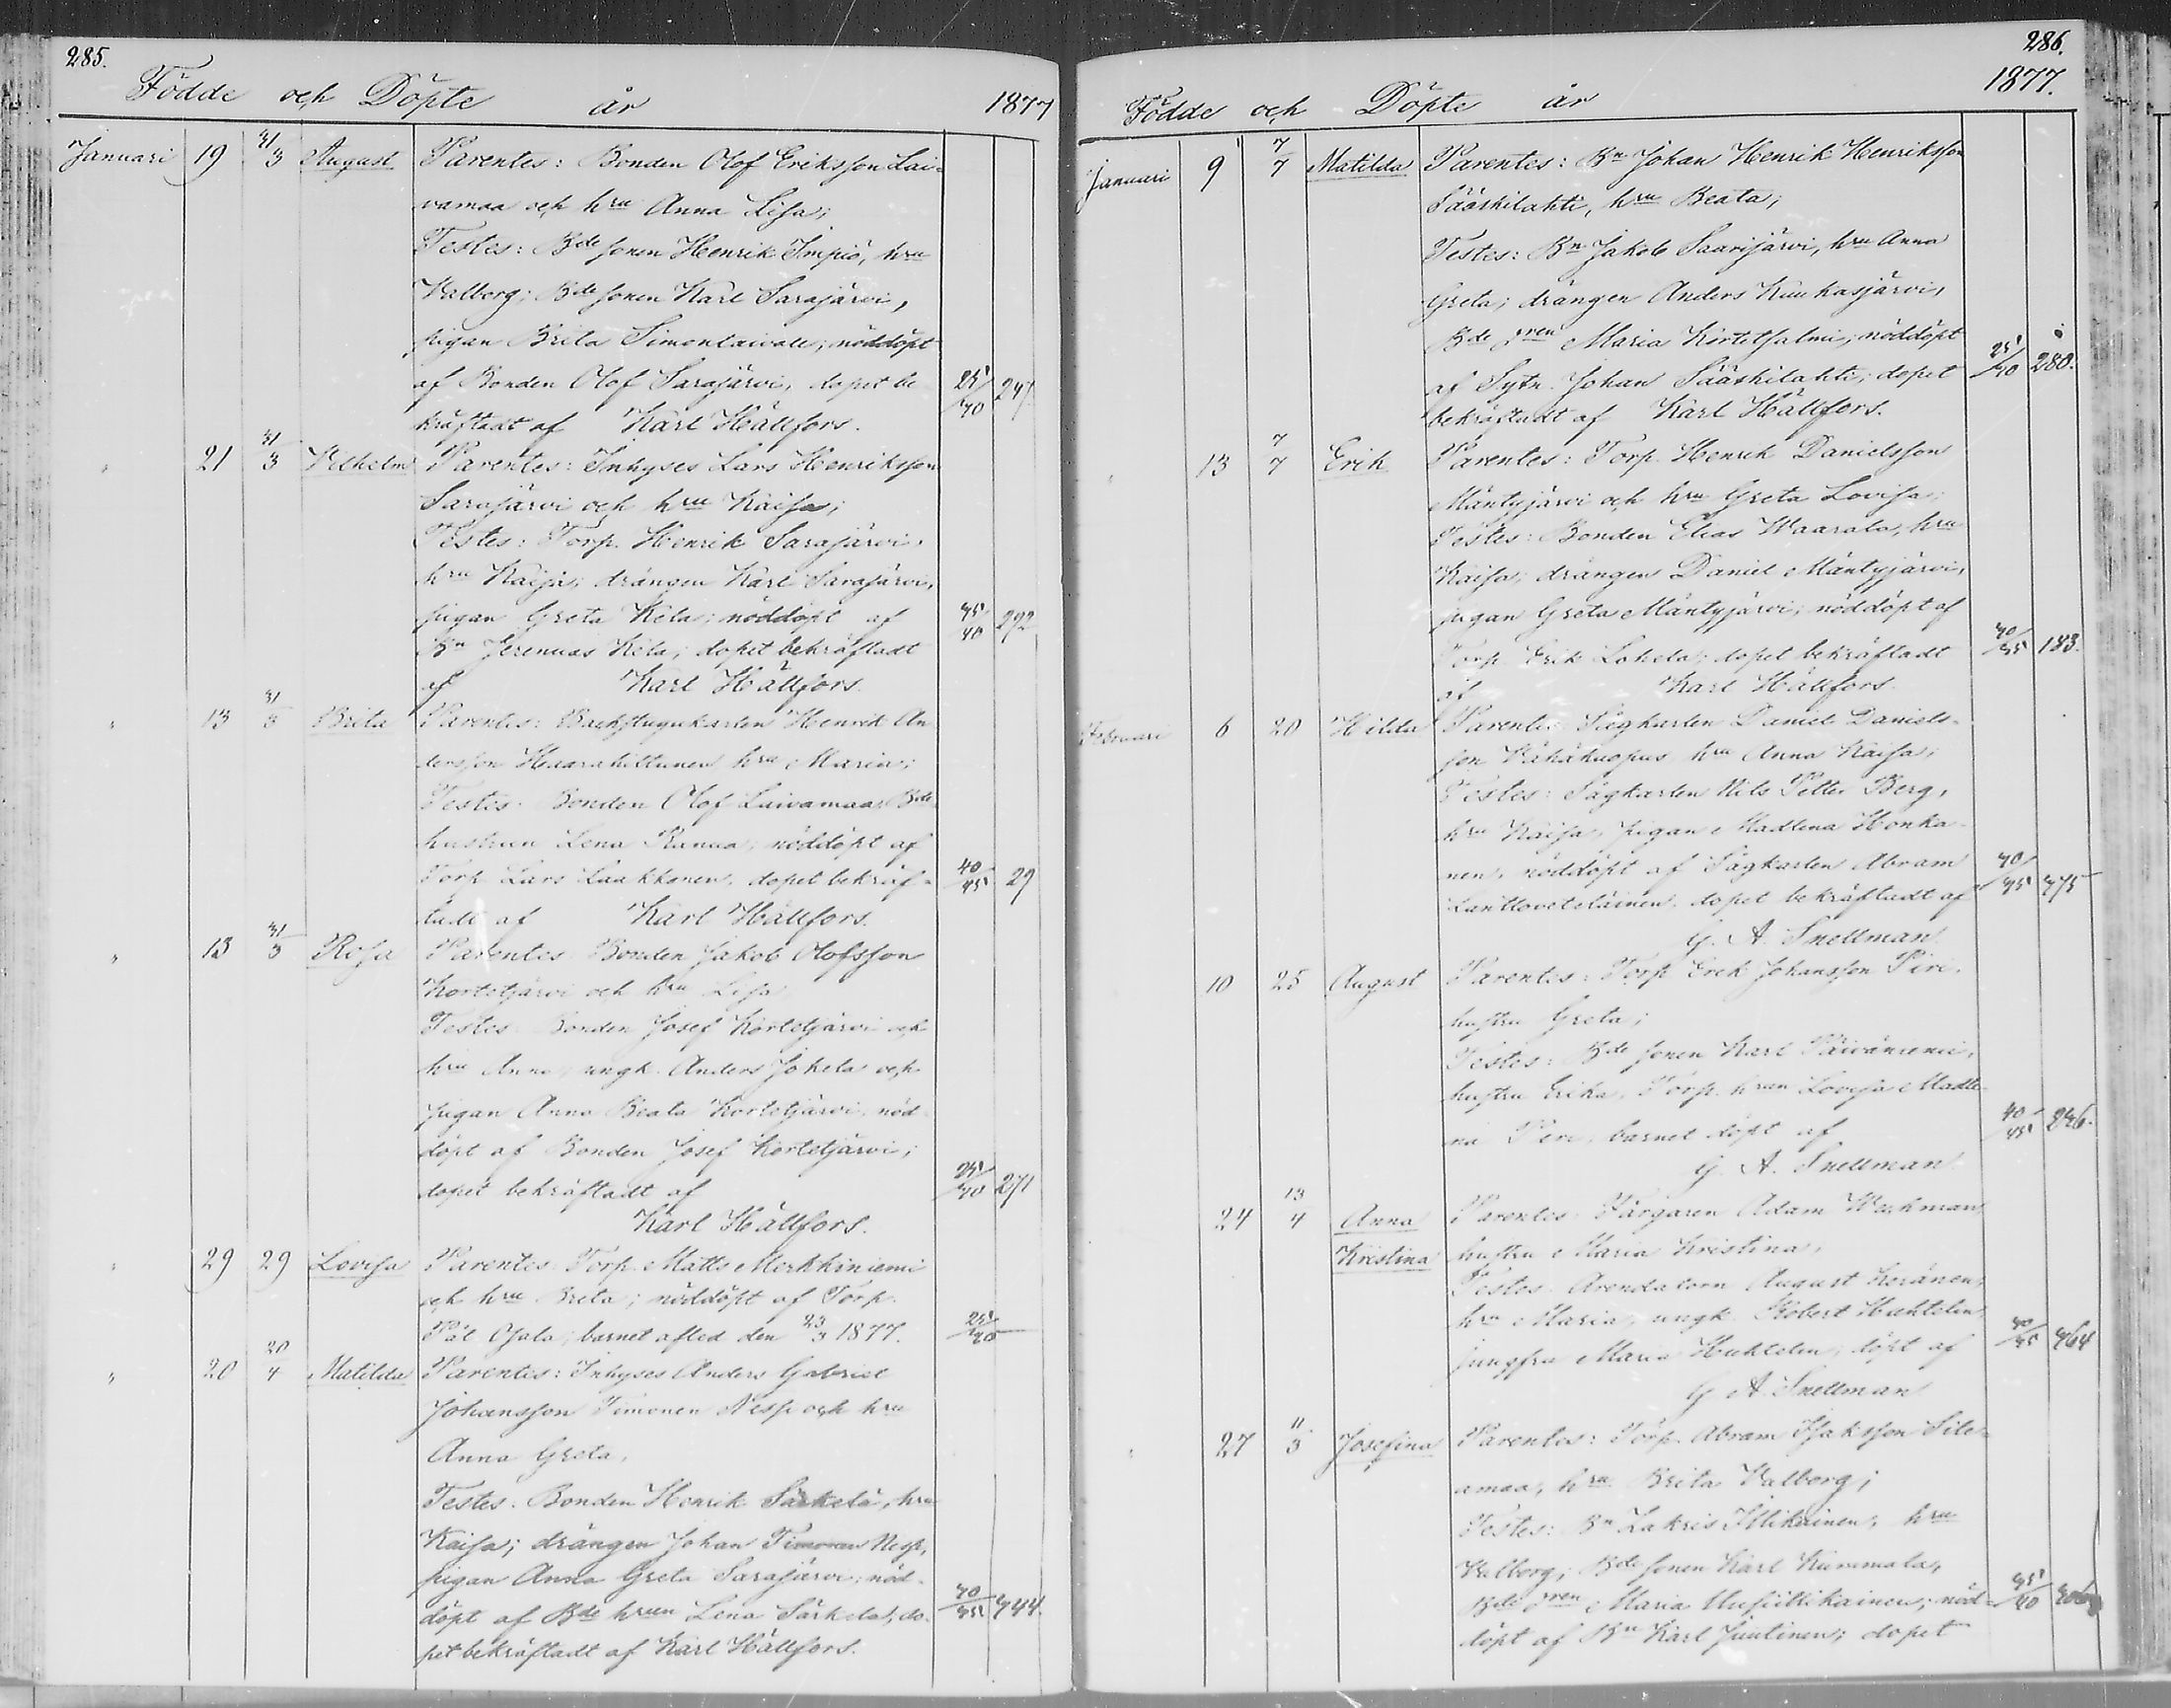 285.
Födde och Döpte år 1877
Januari 19 31/3 August Parentes: Bonden Olof Eriksson Lai-
vamaa och hru Anna Lisa;
Testes: Bde sonen Henrik Impiö, hru
Valborg; Bde sonen Karl Sarajärvi,
pigan Brita Simontaival; nöddöpt
af Bonden Olof Sarajärvi, dopet be- 25/40 247.
kräftadt af Karl Hällfors.
" 21 31/3 Vilhelm Parentes: Inhyses Lars Henriksson
Sarajärvi och hru Kaisa;
Testes: Torp. Henrik Sarajärvi,
hru Kaisa; drängen Karl Sarajärvi,
pigan Greta Kela; nöddöpt af 35/40 292
Bn Jeremias Kela; dopet bekräftadt
af Karl Hällfors.
" 13 31/3 Brita Parentes: Backstugukarlen Henrik An-
dersson Haarahiltunen hru Maria;
Testes: Bonden Olof Laivamaa, Bde
hustrun Lena Ranua; nöddöpt af
Torp. Lars Laakkonen, dopet bekräf- 40/45 29
tadt af Karl Hällfors.
" 13 31/3 Rosa Parentes: Bonden Jakob Olofsson
Kortetjärvi och hru Lisa
Testes: Bonden Josef Kortetjärvi och
hru Anna, ungk. Anders Jokela och
pigan Anna Beata Kortetjärvi, nöd-
döpt af Bonden Josef Kortetjärvi;
dopet bekräftadt af 271
Karl Hällfors.
" 29 29 Lovisa Parentes: Torp. Matts Merkkiniemi
och hru Brita; nöddöpt af Torp.
Pål Ojala; barnet afled den 23/3 1877.
" 20 20/4 Matilda Parentes: Inhyses Anders Gabriel
Johansson Timonen Nesp och hru
Anna Greta,
Testes: Bonden Henrik Särkelä, hru
Kaisa; drängen Johan Timonen Nesp,
pigan Anna Greta Sarajärvi; nöd-
döpt af Bde hrun Lena Särkelä; do- 344.
pet bekräftadt af Karl Hällfors.
286.
Födde och Döpte år 1877.
Januari 9 7/7 Matilda Parentes: Bn Johan Henrik Henriksson
Sääskilahti, hru Beata;
Testes: Bn Jakob Saarijärvi, hru Anna
Greta; drängen Anders Kuukasjärvi,
Bde dren Maria Kortetsalmi; nöddöpt
af Sytn. Johan Sääskilahti; dopet 25/40 280.
bekräftadt af Karl Hällfors.
" 13 7/7 Erik Parentes: Torp. Henrik Danielsson
Mäntyjärvi och hru Greta Lovisa;
Testes: Bonden Elias Waarala, hru
Kaisa; drängen Daniel Mäntyjärvi,
pigan Greta Mäntyjärvi; nöddöpt af
Torp. Erik Lohela; dopet bekräftadt 183.
af Karl Hällfors.
Februari 6 20 Hilda Parentes: Sågkarlen Daniel Daniels-
son Vähäkuopus hru Anna Kaisa;
Testes: Sågkarlen Nils Petter Berg,
hru Kaisa, pigan Madlena Honka-
nen, nöddöpt af Sågkarlen Abram
dopet bekräftadt af 375
G. A. Snellman.
10 25 August Parentes: Torp. Erik Johansson Piri,
hustru Greta;
Testes: Bde sonen Karl Päivärienni,
hustru Erika, Torp. hrun Lovisa Madle-
na Piri, barnet döpt af 40/45
G. A. Snellman.
24 13/4 Anna Parentes: Färgaren Adam
Kristina hustru Maria Kristina,
Testes: Arendatorn August Keränen,
hru Maria, ungk. Robert Huhtelin,
jungfru Maria Huhtelin; döpt af 364
G. A. Snellman
" 27 11/3 Josefina Parentes: Torp. Abram Isaksson Sila-
amaa, hru Brita Valborg;
Testes: Bn Zakris Illikainen, hru
Valborg; Bde sonen Karl Kurmala,
Bde dren Maria nöd- 35/40
döpt af Bn Karl Juntinen; dopet